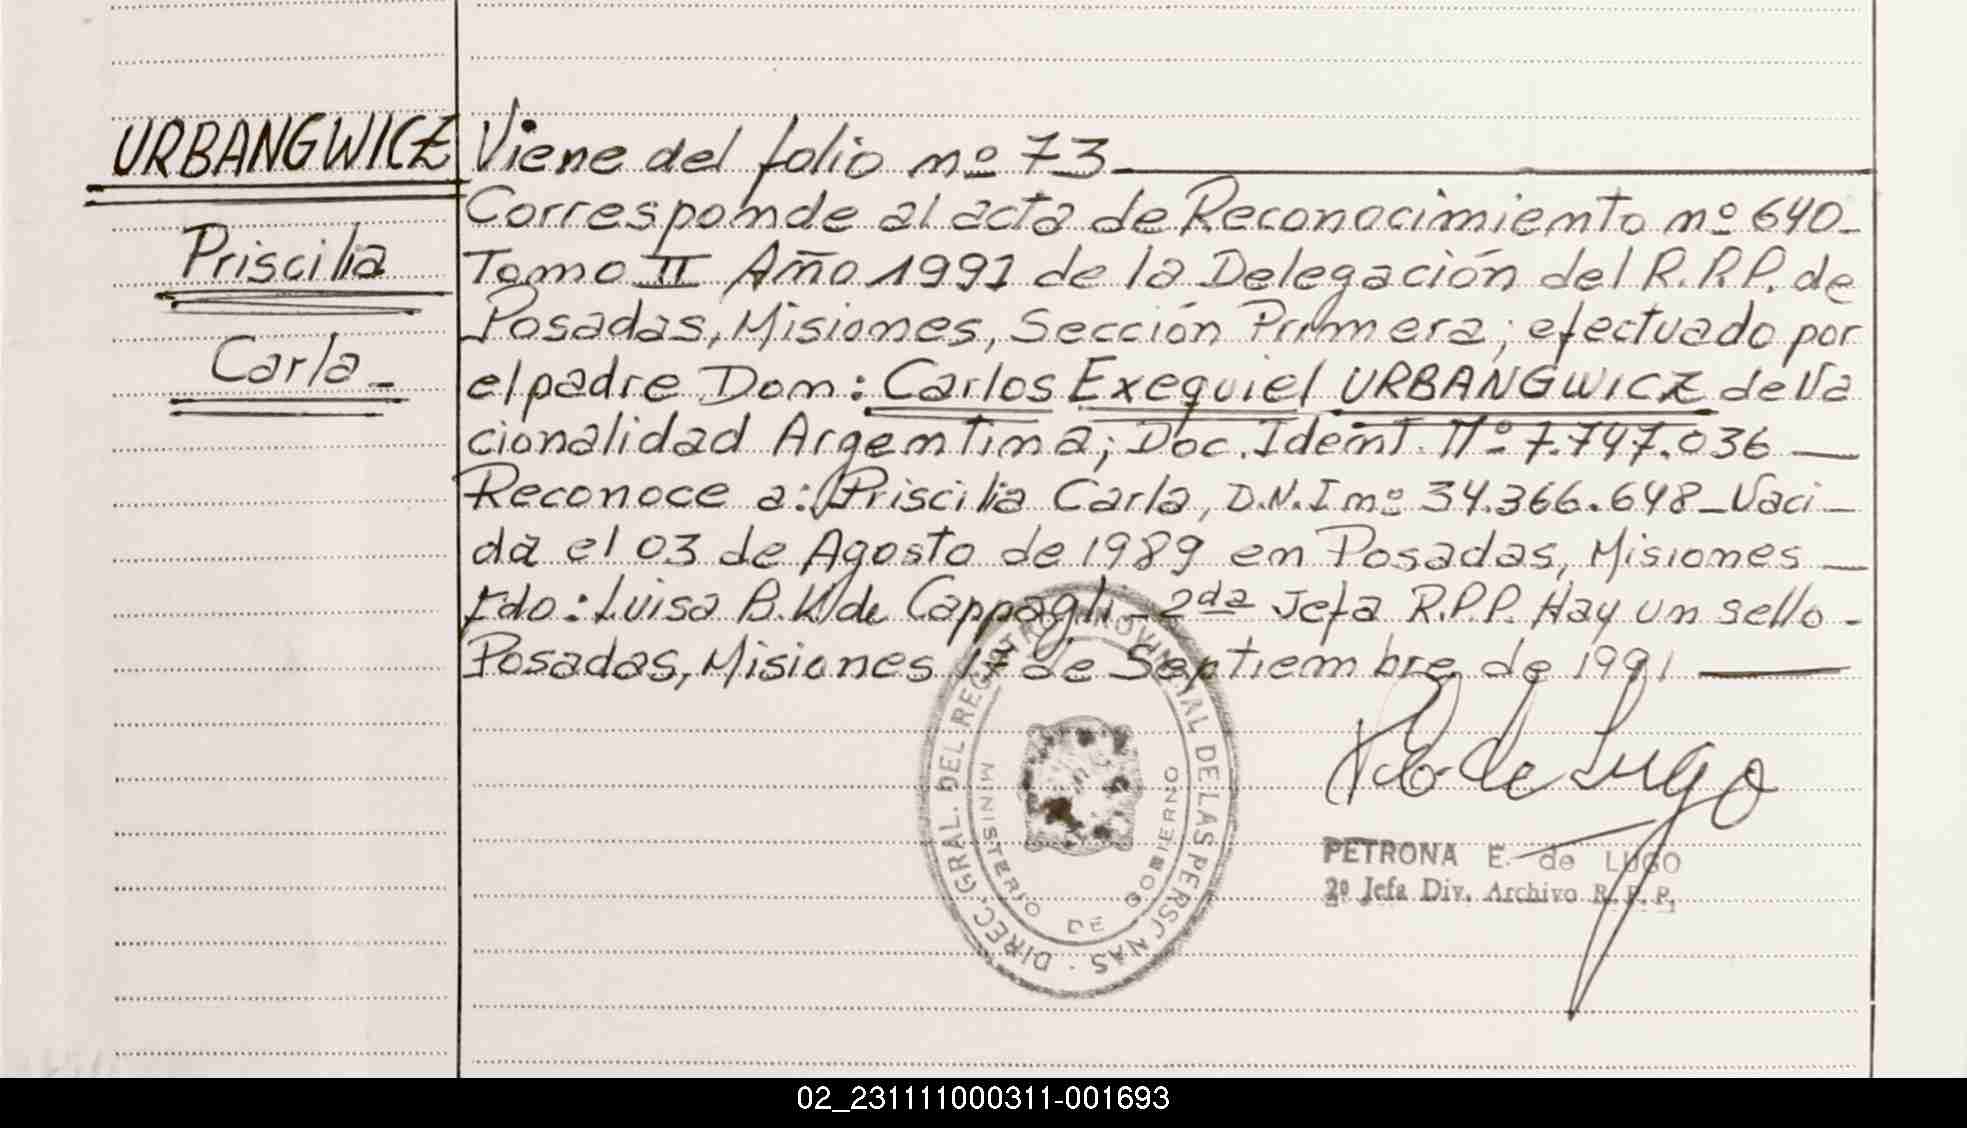 URBANGWICZ
Priscilia
Carla_
Viene del folio nº 73
Corresponde al acta de Reconocimiento nº 640_
Tomo II Año 1991 de la Delegación del R.P.P. de
Posadas, Misiones, Sección Primera; efectuado por
el padre Don: Carlos Exequiel URBANGWICZ de Na
cionalidad Argentina; Doc. Ident. Nº 7.747.036
Reconoce a: Priscilia Carla, D.N.I nº 34.366.648_Naci_
da el 03 de Agosto de 1989 en Posadas, Misiones
Fdo: Luisa B.K de Cappagli_2da Jefa R.P.P. Hay un sello.
Posadas, Misiones 17 de Septiembre de 1991
DIREC. GRAL. DEL REGISTRO PROVINCIAL DE LAS PERSONAS
MINISTERIO DE GOBIERNO
de Lugo
PETRONA E. de LUGO
2º Jefa Div. Archivo R. P. P.
02_231111000311-001693